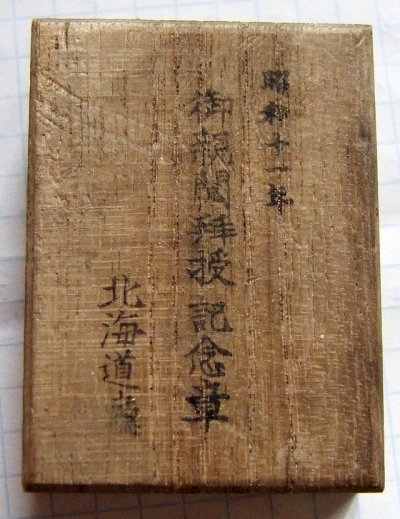 昭和十一年
御親閲拝授記念章
北海道廳